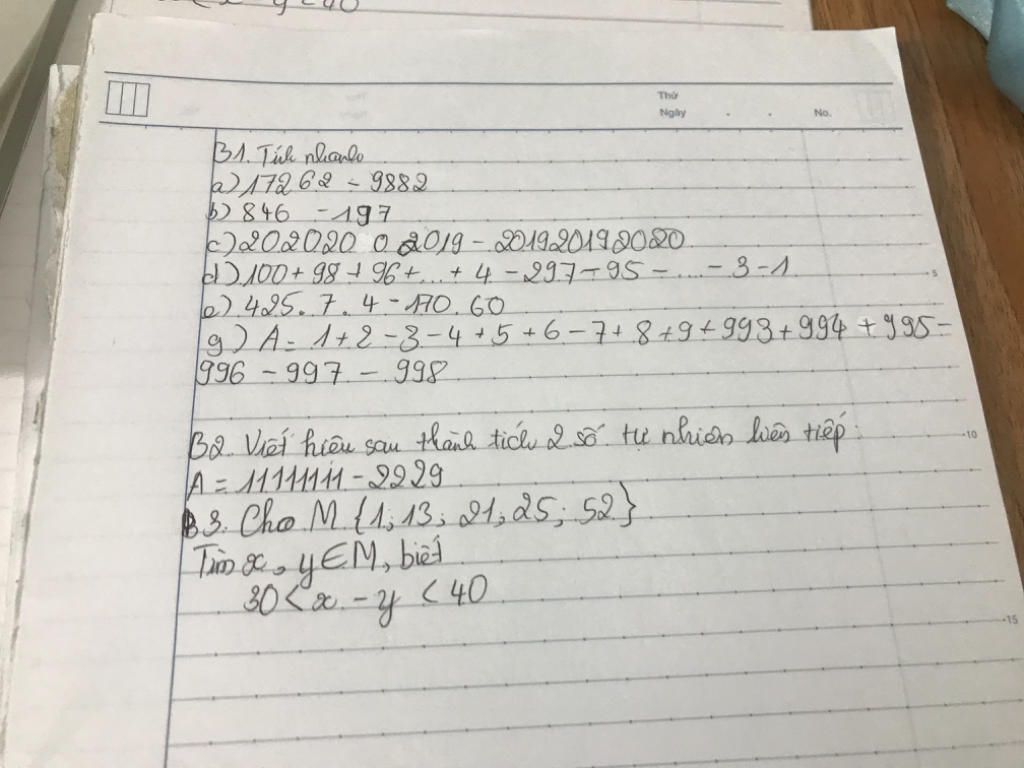 x - y < 40
Thứ
Ngày . . No.
B1. Tính nhanh
a) 17262 - 9882
b) 846 - 197
c) 202020 0 2019 - 201920192020
d) 100 + 98 + 96 + ... + 4 - 297 - 95 - ... - 3 - 1
5
e) 425 . 7 . 4 - 170 . 60
g) A = 1 + 2 - 3 - 4 + 5 + 6 - 7 + 8 + 9 + 993 + 994 + 995 -
996 - 997 - 998
B2. Viết hiệu sau thành tích 2 số tự nhiên liên tiếp :
10
A = 11111111 - 2229
B3. Cho M {1; 13; 21; 25; 52}
Tìm x, y ∈ M, biết
30 < x - y < 40
15